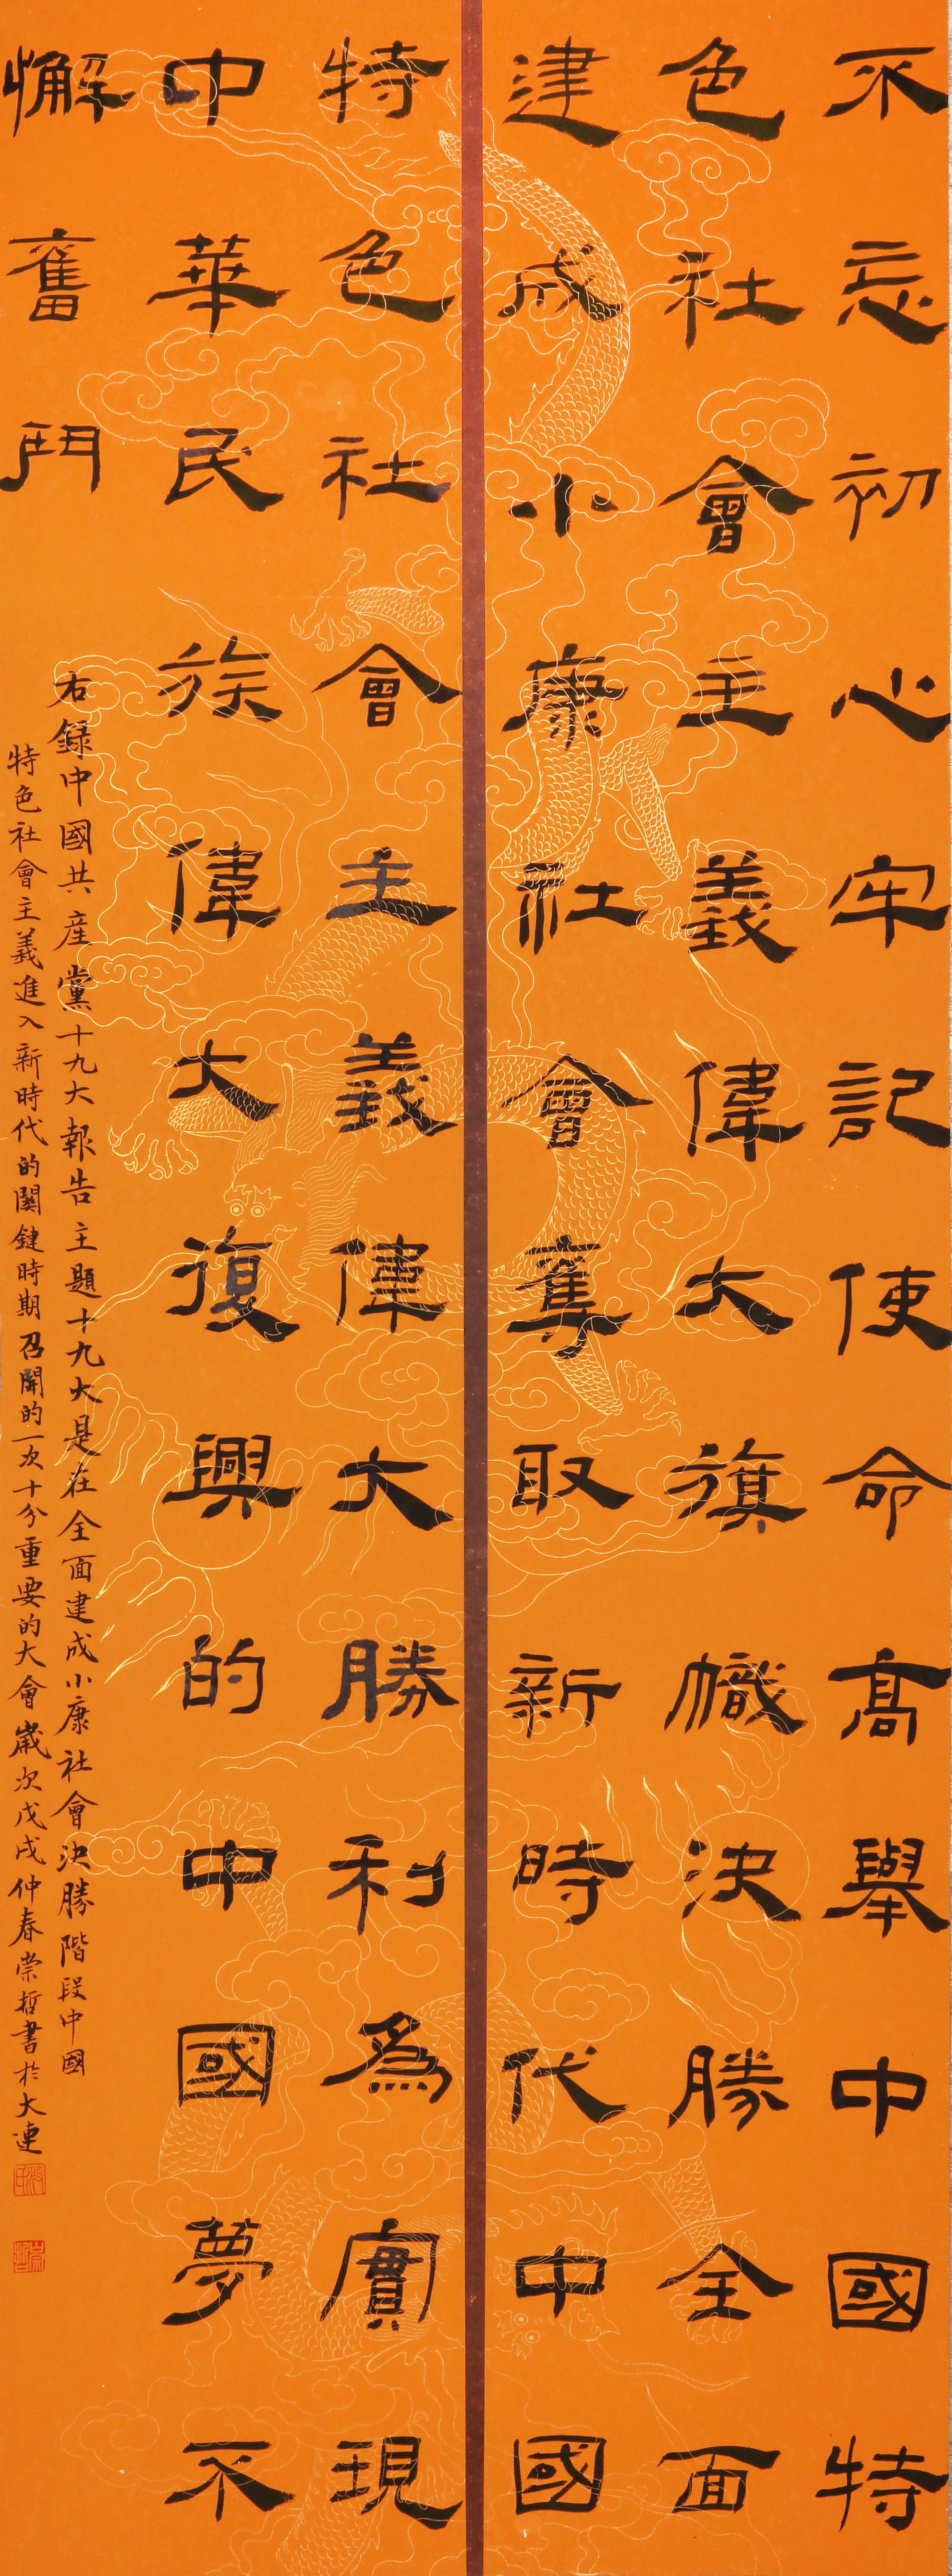 不忘初心牢記使命高舉中國特
色社會主義偉大旗幟決勝全面
建成小康社會奪取新時代中國
特色社會主義偉大勝利為實現
中華民族偉大復興的中國夢不
懈奮鬥
右録中國共産黨十九大報告主題十九大是在全面建成小康社會決勝階段中國
特色社會主義進入新時代的關鍵時期召開的一次十分重要的大會歲次戊戌仲春崇哲書於大連
崇哲